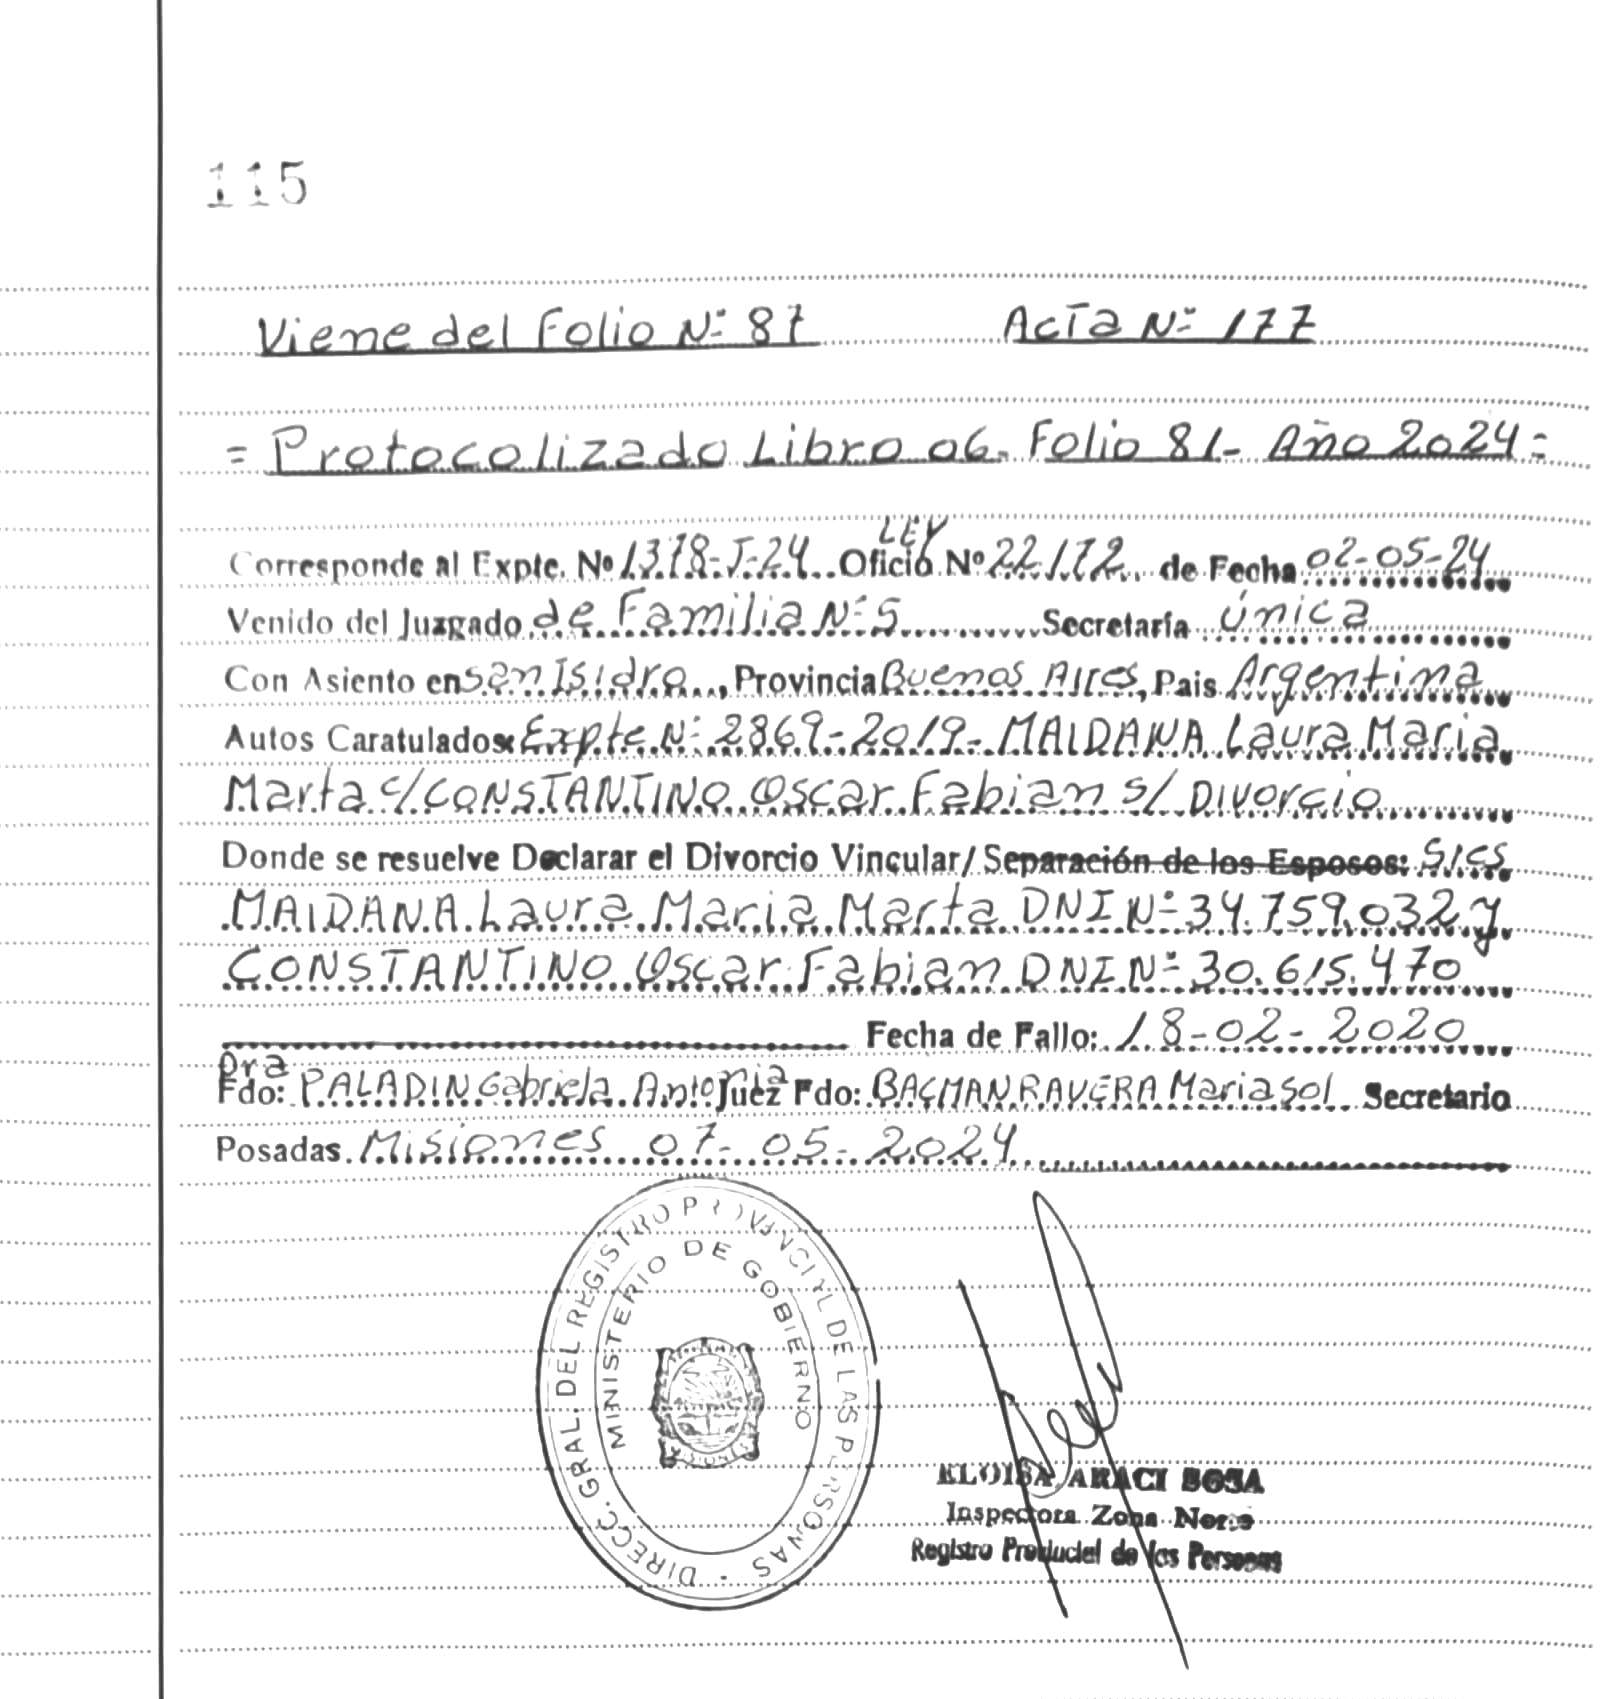 115
Viene del Folio Nº 87 Acta Nº 177
= Protocolizado Libro 06- Folio 81- Año 2024 =
LEY
Corresponde al Expte. Nº 1378-J-24 Oficio Nº 22.172 de Fecha 02-05-24
Venido del Juzgado de Familia Nº 5 Secretaría única
Con Asiento en San Isidro, Provincia Buenos Aires, Pais Argentina
Autos Caratulados: Expte Nº 2869-2019- MAIDANA Laura Maria
Marta c/ CONSTANTINO Oscar Fabian s/ Divorcio
Donde se resuelve Declarar el Divorcio Vincular/ Separación de los Esposos: S/cs
MAIDANA Laura Maria Marta DNI Nº 34.759.032 y
CONSTANTINO Oscar Fabian DNI Nº 30.615.470
Fecha de Fallo: 18-02-2020
Dra
Fdo: PALADIN Gabriela Antonia Juez Fdo: BACMAN RAVERA Maria Sol Secretario
Posadas Misiones 07-05-2024
DIRECC. GRAL. DEL REGISTRO PROVINCIAL DE LAS PERSONAS -
MINISTERIO DE GOBIERNO
ELOISA ARACI SOSA
Inspectora Zona Norte
Registro Provincial de las Personas